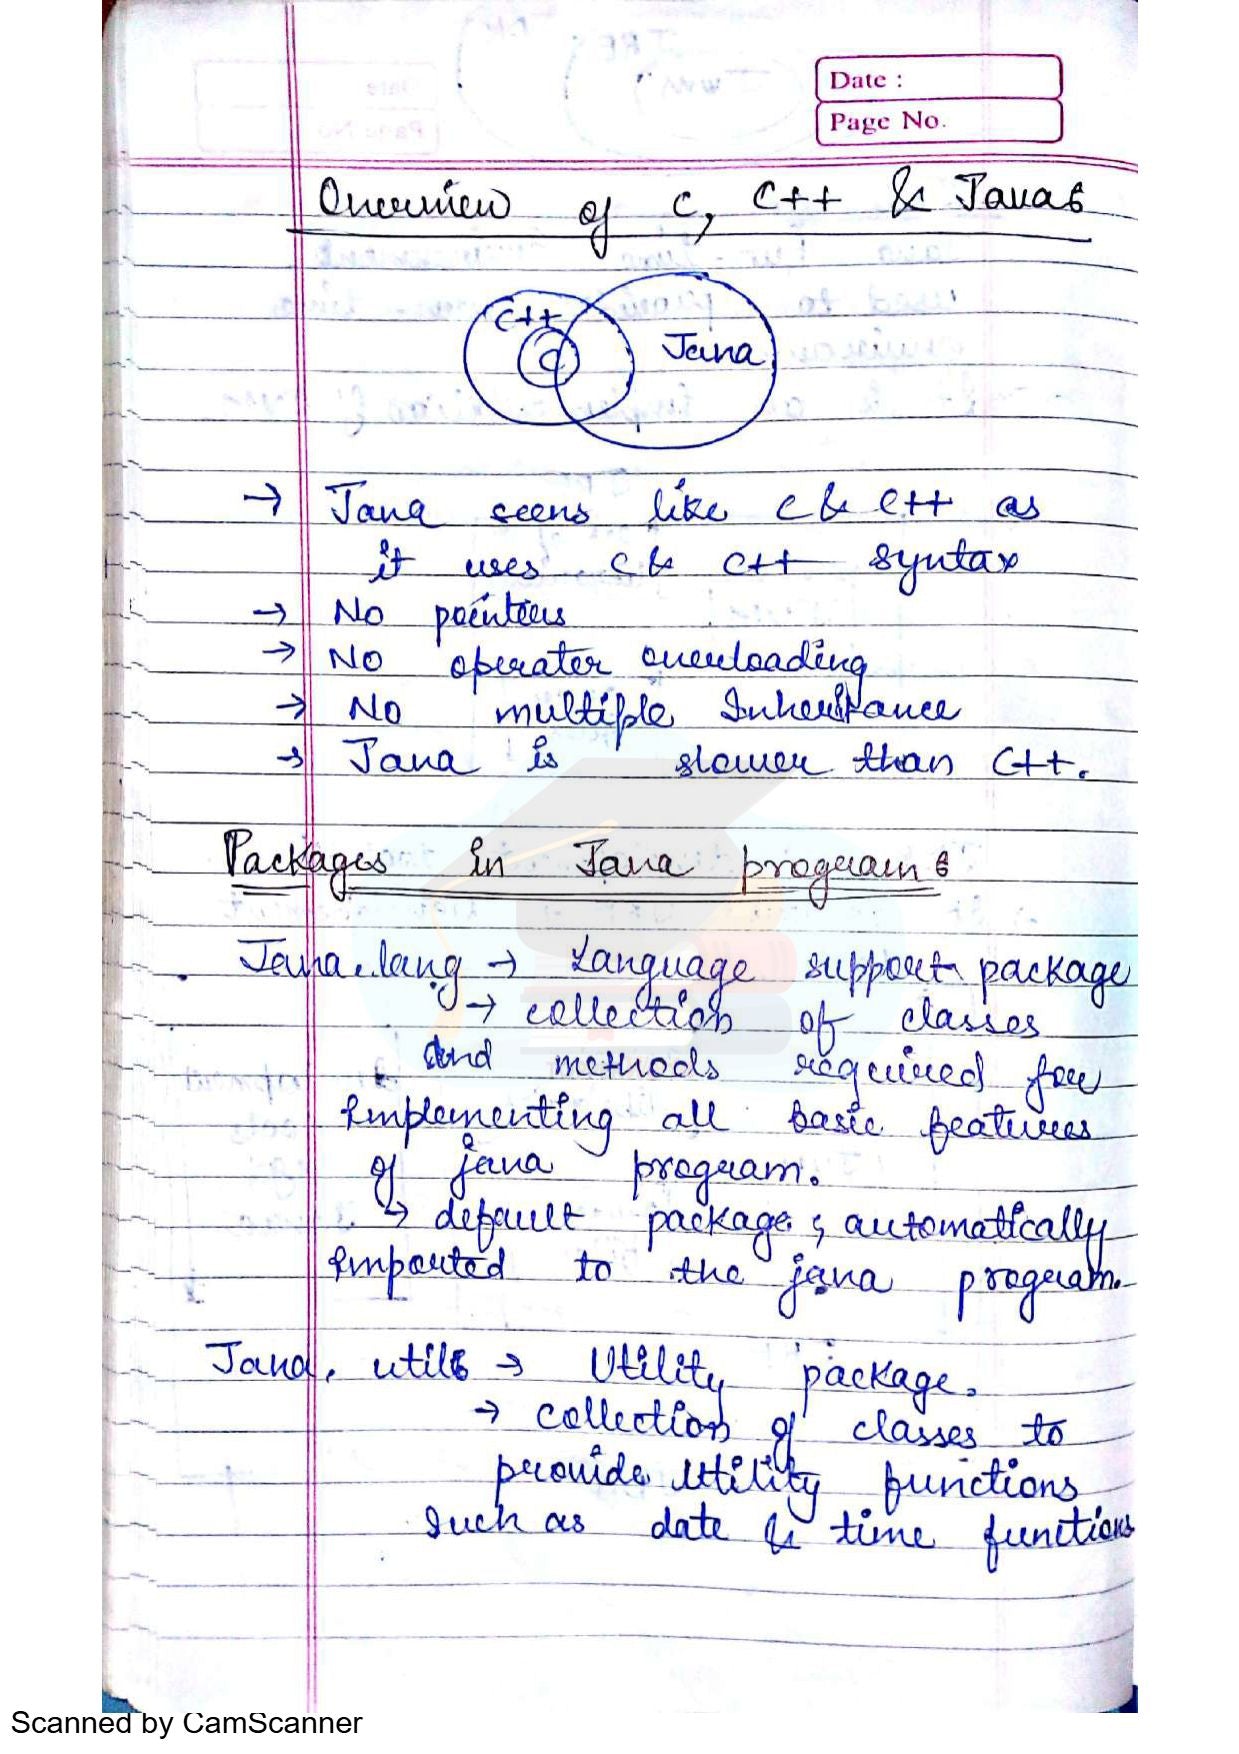 Date :
Page No.
Overview of C, C++ & Java:
C++
C
Java
→ Java seens like C & C++ as
it uses C & C++ syntax
→ No pointers
→ No operater overloading
→ No multiple Inheritance
→ Java is slower than C++.
Packages in Java program:
Java.lang → Language support package
→ collection of classes
and methods required for
implementing all basic features
of java program.
↳ default package, automatically
imported to the java program.
Java. utils → Utility package.
→ collection of classes to
provide utility functions
such as date & time functions
Scanned by CamScanner